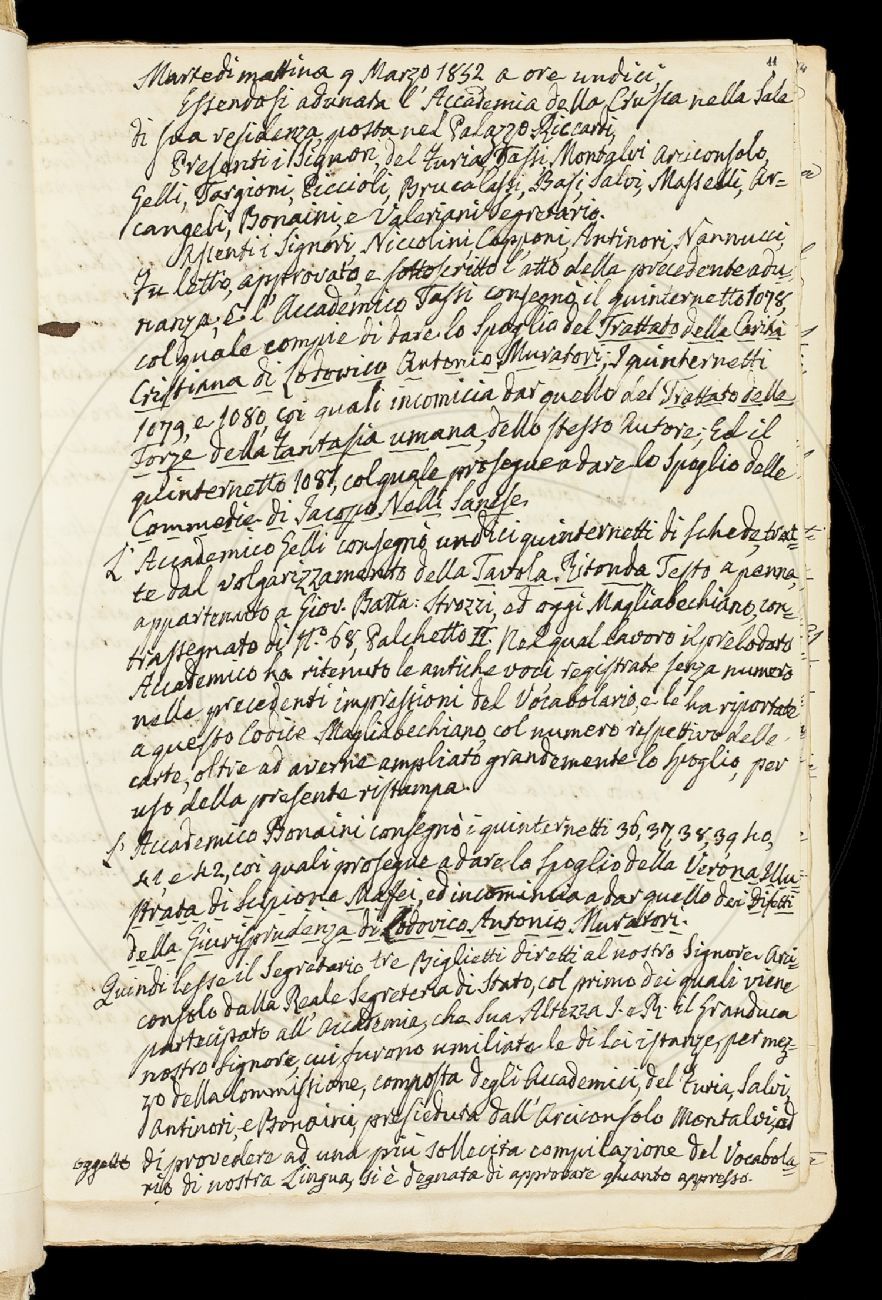 11
Martedi mattina 9 Marzo 1852 a ore undici,
Essendosi adunata l'Accademia della Crusca nella Sala
di sua residenza, posta nel Palazzo Riccardi,
Presenti i Signori, Del Furia, Tassi, Montalvi Arciconsolo,
Gelli, Targioni, Piccioli, Brucalassi, Basi, Salvi, Masselli, Ar-
cangeli, Bonaini, e Valeriani Segretario.
Assenti i Signori, Niccolini, Capponi, Antinori, Nannucci,
Fu letto, approvato, e sottoscritto l'atto della precedente adu-
nanza; E l'Accademico Tassi consegnò il quinternetto 1078,
col quale compie di dare lo Spoglio del Trattato della Carità
Cristiana di Lodovico Antonio Muratori; I quinternetti
1079, e 1080, coi quali incomicia dar quello del Trattato delle
Forze della Fantasia umana, dello stesso Autore; Ed il
quinternetto 1081, col quale prosegue a dare lo Spoglio delle
Commedie di Jacopo Nelli Sanese.
L'Accademico Gelli consegnò undici quinternetti di schede, trat-
te dal volgarizzamento della Tavola Ritonda Testo a penna,
appartenuto a Giov. Batta: Strozzi, ed oggi Magliabechiano, con-
trassegnato di N.° 68, Palchetto II, Nel qual lavoro il prelodato
Accademico ha ritenuto le antiche voci registrate senza numero
nelle precedenti impressioni del Vocabolario, e le ha riportate
a questo Codice Magliabechiano, col numero respettivo delle
carte, oltre ad averne ampliato grandemente lo spoglio, per
uso della presente ristampa.
L'Accademico Bonaini consegnò i quinternetti 36, 37, 38, 39, 40,
41, e 42, coi quali prosegue a dare lo Spoglio della Verona Illu-
strata di Scipione Maffei, ed incomincia a dar quello dei Difetti
della Giurisprudenza di Lodovico Antonio Muratori.
Quindi lesse il Segretario tre Biglietti diretti al nostro Signore Arci-
consolo dalla Reale Segreteria di Stato, col primo dei quali viene
partecipato all'Accademia, che Sua Altezza I. e R. il Granduca
nostro Signore, cui furono umiliate le di lei istanze, per mez-
zo della Commissione, composta degli Accademici, del Furia, Salvi,
Antinori, e Bonaini, presieduta dall'Arciconsolo Montalvi, ad
oggetto di provedere ad una più sollecita compilazione del Vocabola-
rio di nostra Lingua, si è degnata di approvare quanto appresso.